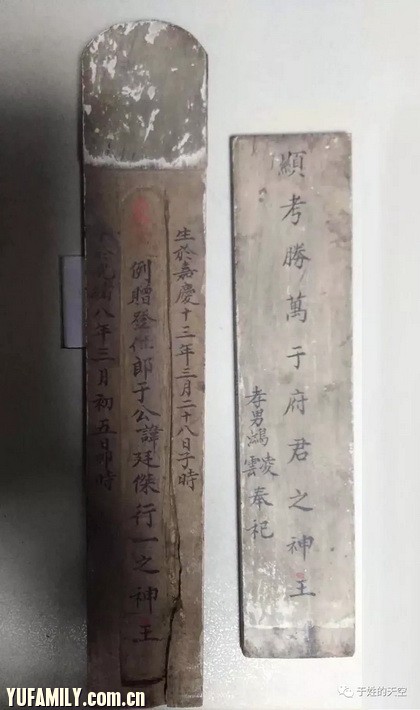 生於嘉慶十三年三月二十八日子時
例贈登郎于公諱廷傑行一之神王
於光緒八年三月初五日卯時
顯考勝萬于府君之神王
孝男鴻凌雲奉祀
YUFAMILY.com.cn
于姓的天空